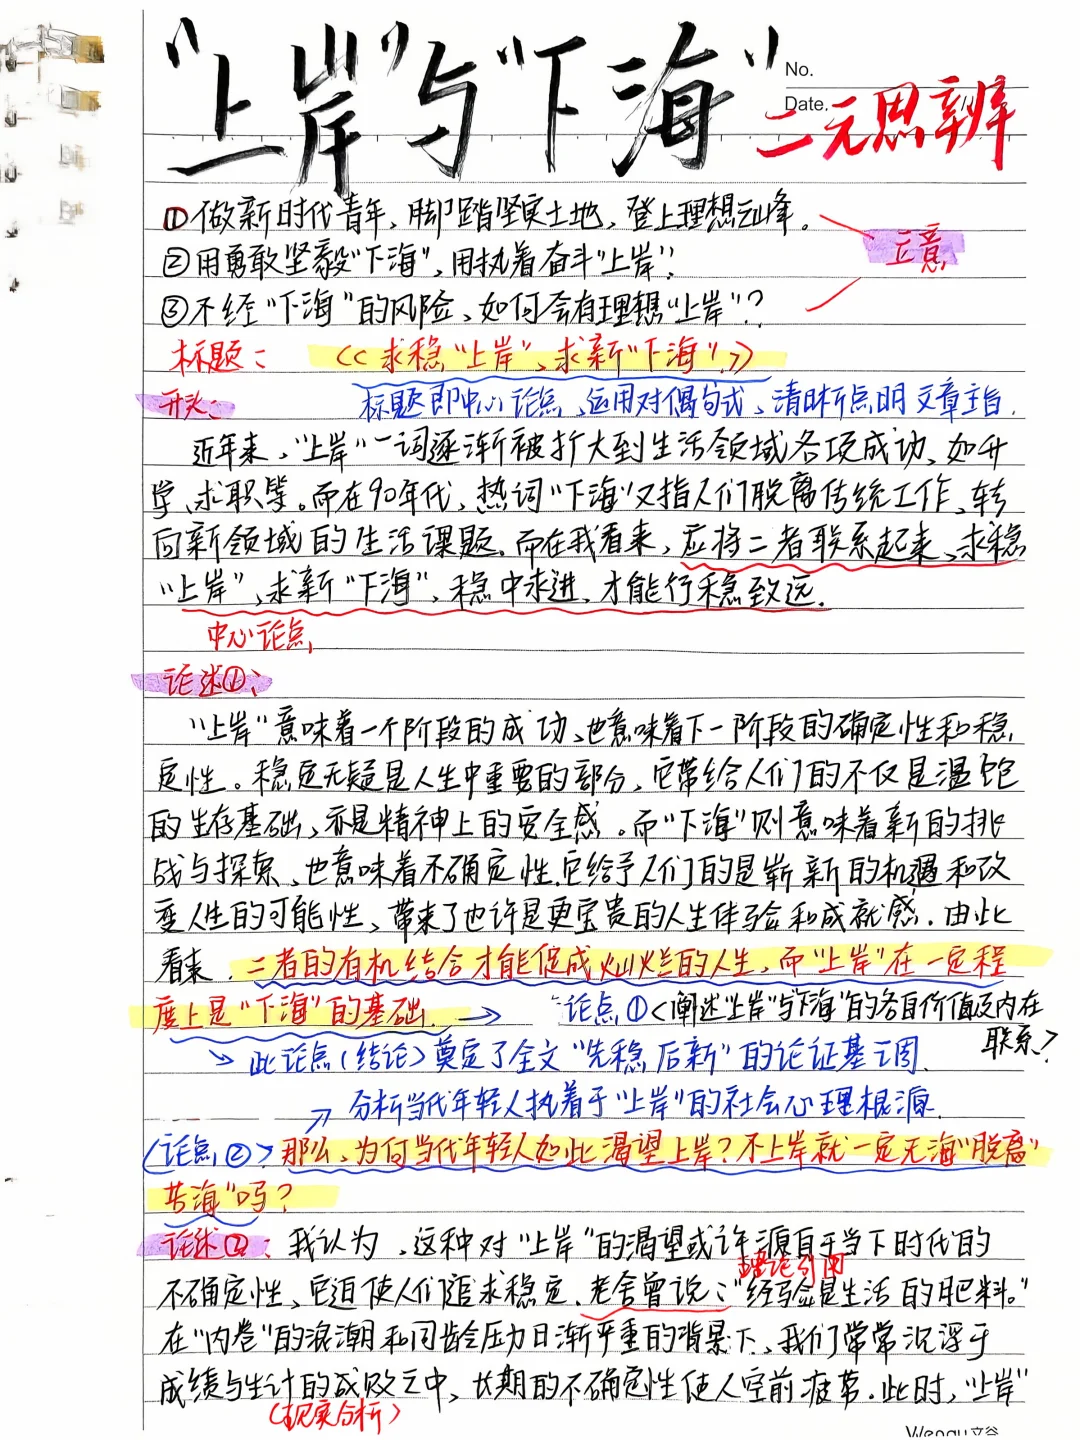 "上岸"与"下海"
No.
Date.
二元思辨
①做新时代青年，脚踏坚实土地，登上理想云峰。
立意
②用勇敢坚毅"下海"，用执着奋斗"上岸"！
③不经"下海"的风险，如何会有理想"上岸"？
标题：《求稳"上岸"，求新"下海"》
开头：
标题即中心论点，运用对偶句式，清晰点明文章主旨.
近年来，"上岸"一词逐渐被扩大到生活领域各项成功，如升
学、求职等。而在90年代，热词"下海"又指人们脱离传统工作，转
向新领域的生活课题.而在我看来，应将二者联系起来，求稳
"上岸"，求新"下海"，稳中求进，才能行稳致远.
中心论点
论述①：
"上岸"意味着一个阶段的成功，也意味着下一阶段的确定性和稳
定性。稳定无疑是人生中重要的部分，它带给人们的不仅是温饱
的生存基础，亦是精神上的安全感。而"下海"则意味着新的挑
战与探索，也意味着不确定性.它给予人们的是崭新的机遇和改
变人生的可能性，带来了也许是更宝贵的人生体验和成就感.由此
看来，二者的有机结合才能促成灿烂的人生，而"上岸"在一定程
度上是"下海"的基础.
论点①<阐述"上岸"与"下海"的各自价值及内在
联系>
此论点(结论)奠定了全文"先稳后新"的论证基调.
分析当代年轻人执着于"上岸"的社会心理根源.
<论点②>那么，为何当代年轻人如此渴望上岸？不上岸就一定无海"脱离
苦海"吗？
论述②：我认为，这种对"上岸"的渴望或许源自于当下时代的
理论引用
不确定性，它迫使人们追求稳定.老舍曾说："经验是生活的肥料。"
在"内卷"的浪潮和同龄压力日渐严重的背景下，我们常常沉浮于
成绩与生计的成败之中，长期的不确定性使人空前疲惫.此时，"上岸"
(现实分析)